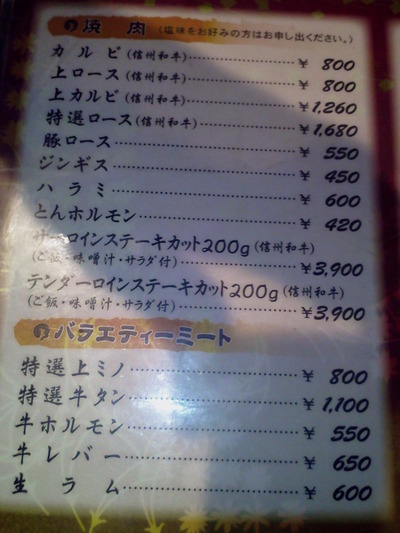 焼肉 (塩味をお好みの方はお申し出ください。)
カルビ(信州和牛)……¥800
上ロース(信州和牛)……¥800
上カルビ(信州和牛)……¥1,260
特選ロース(信州和牛)……¥1,680
豚ロース……¥550
ジンギス……¥450
ハラミ……¥600
とんホルモン……¥420
サーロインステーキカット200g(信州和牛)
(ご飯・味噌汁・サラダ付)……¥3,900
テンダーロインステーキカット200g(信州和牛)
(ご飯・味噌汁・サラダ付)……¥3,900
バラエティーミート
特選上ミノ……¥800
特選牛タン……¥1,100
牛ホルモン……¥550
牛レバー……¥650
生ラム……¥600